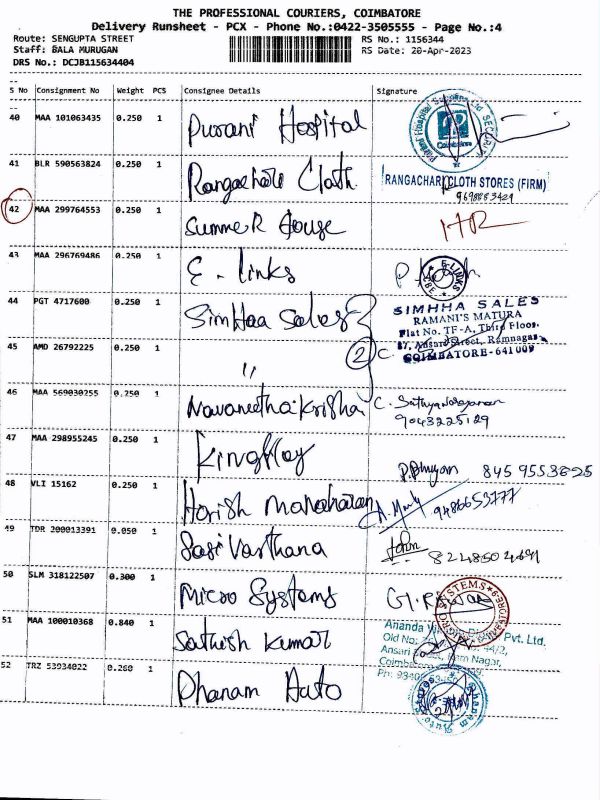 THE PROFESSIONAL COURIERS, COIMBATORE
Delivery Runsheet - PCX - Phone No.:0422-3505555 - Page No.:4
Route: SENGUPTA STREET RS No.: 1156344
Staff: BALA MURUGAN RS Date: 20-Apr-2023
DRS No.: DCJB115634404
S No Consignment No Weight PCS Consignee Details Signature
40 MAA 101063435 0.250 1 Purani Hospital
Purani Hospital SECURITY Coimbatore
41 BLR 590563824 0.250 1 Rangachari Cloth
RANGACHARI CLOTH STORES (FIRM)
42 MAA 299764553 0.250 1 Summer House
43 MAA 296769486 0.250 1 E-links
E-LINKS CBE
44 PGT 4717600 0.250 1 SimHaa Sales
SIMHHA SALES
RAMANI'S MATURA
Flat No. TF-A, Third Floor,
Ansari Street, Ramnagar
COIMBATORE-641009
45 AMD 26792225 0.250 1 " 2
46 MAA 569030255 0.250 1 Navaneetha Krisha
C. Sathya Narayanan
9043225129
47 MAA 298955245 0.250 1 Kingfley
48 VLI 15162 0.250 1 Harish Manoharan
9486653777
49 TDR 200013391 0.050 1 Sasi Varthana
50 SLM 318122507 0.300 1 Micro Systems
51 MAA 100010368 0.840 1 Sathish Kumar
Ananda Pvt. Ltd.
Old No: 44/2,
Ansari Ram Nagar,
Ph:
52 TRZ 53934022 0.260 1 Dhanam Auto